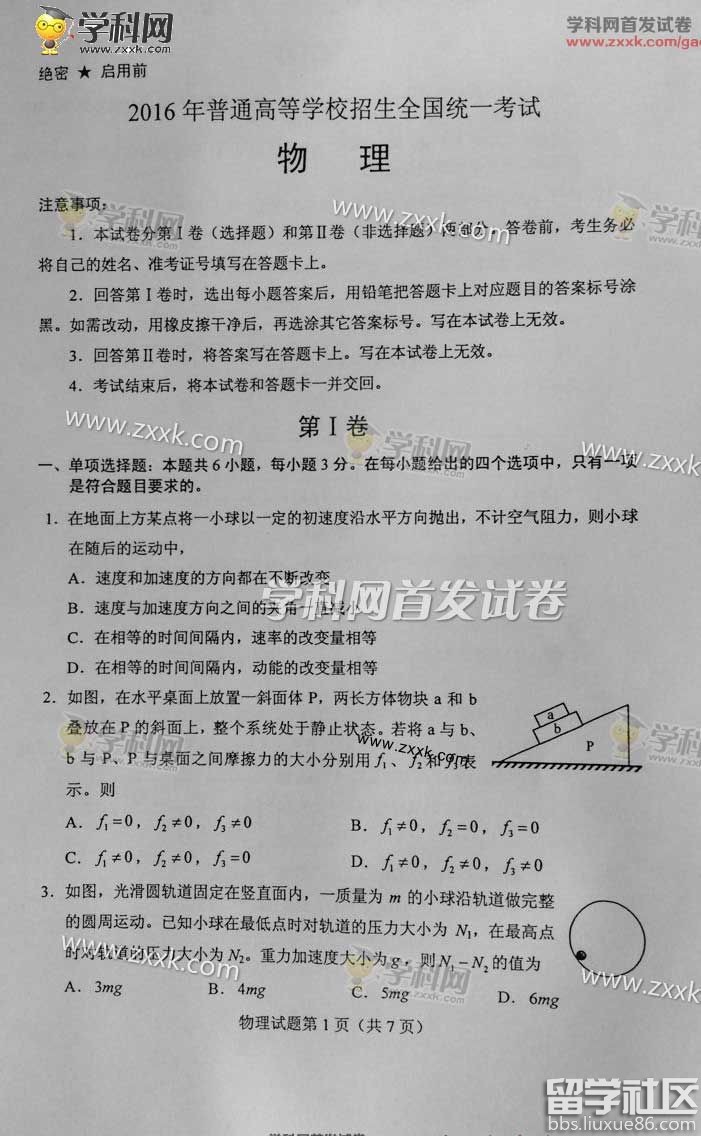 学科网
www.zxxk.com
学科网首发试卷
www.zxxk.com/gao
绝密 ★ 启用前
2016 年普通高等学校招生全国统一考试
物 理
注意事项:
1．本试卷分第Ⅰ卷（选择题）和第Ⅱ卷（非选择题）两部分。答卷前，考生务必
将自己的姓名、准考证号填写在答题卡上。
2．回答第Ⅰ卷时，选出每小题答案后，用铅笔把答题卡上对应题目的答案标号涂
黑。如需改动，用橡皮擦干净后，再选涂其它答案标号。写在本试卷上无效。
3．回答第Ⅱ卷时，将答案写在答题卡上。写在本试卷上无效。
4．考试结束后，将本试卷和答题卡一并交回。
第Ⅰ卷
一、单项选择题：本题共 6 小题，每小题 3 分。在每小题给出的四个选项中，只有一项
是符合题目要求的。
1．在地面上方某点将一小球以一定的初速度沿水平方向抛出，不计空气阻力，则小球
在随后的运动中，
A．速度和加速度的方向都在不断改变
B．速度与加速度方向之间的夹角一直减小
C．在相等的时间间隔内，速率的改变量相等
D．在相等的时间间隔内，动能的改变量相等
学科网首发试卷
2．如图，在水平桌面上放置一斜面体 P，两长方体物块 a 和 b
叠放在 P 的斜面上，整个系统处于静止状态。若将 a 与 b、
b 与 P、P 与桌面之间摩擦力的大小分别用 f₁、f₂ 和 f₃ 表
示。则
a
b
P
A．f₁=0，f₂≠0，f₃≠0 B．f₁≠0，f₂=0，f₃=0
C．f₁≠0，f₂≠0，f₃=0 D．f₁≠0，f₂≠0，f₃≠0
3．如图，光滑圆轨道固定在竖直面内，一质量为 m 的小球沿轨道做完整
的圆周运动。已知小球在最低点时对轨道的压力大小为 N₁，在最高点
时对轨道的压力大小为 N₂。重力加速度大小为 g，则 N₁－N₂ 的值为
A．3mg B．4mg C．5mg D．6mg
物理试题第 1 页（共 7 页）
留学社区
bbs.liuxue86.com